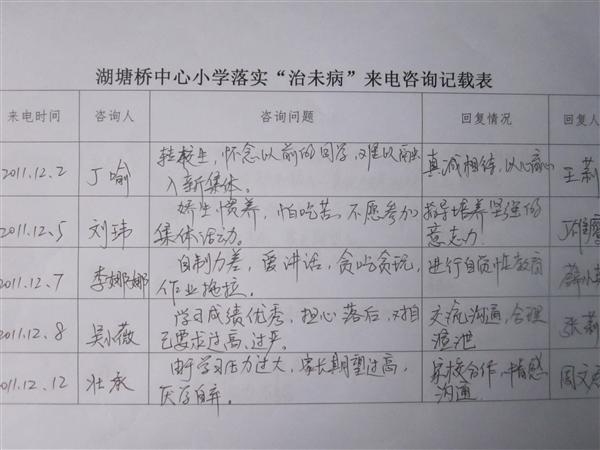 湖塘桥中心小学落实“治未病”来电咨询记载表
来电时间 咨询人 咨询问题 回复情况 回复人
2011.12.2 丁喻 转校生，怀念以前的同学，难以融 真诚相待，以心换心 王莉
入新集体。
2011.12.5 刘玮 娇生惯养，怕吃苦，不愿参加 指导培养坚强的
集体活动。 意志力
2011.12.7 李娜娜 自制力差，爱讲话，贪吃贪玩， 进行自觉性教育
作业拖拉。
2011.12.8 吴小薇 学习成绩优秀，担心落后，对自 交流沟通，合理 张莉
己要求过高、过严。 宣泄
2011.12.12 由于学习压力过大，家长期望过高， 家校合作，情感 周文
厌学自弃。 沟通